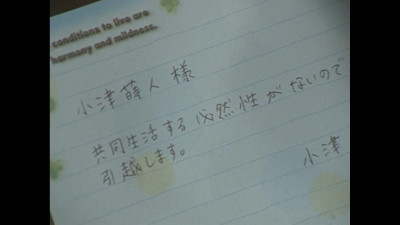 conditions to live are
harmony and mildness.
小津薛人様
共同生活する必然性がないので
引越します。
小津